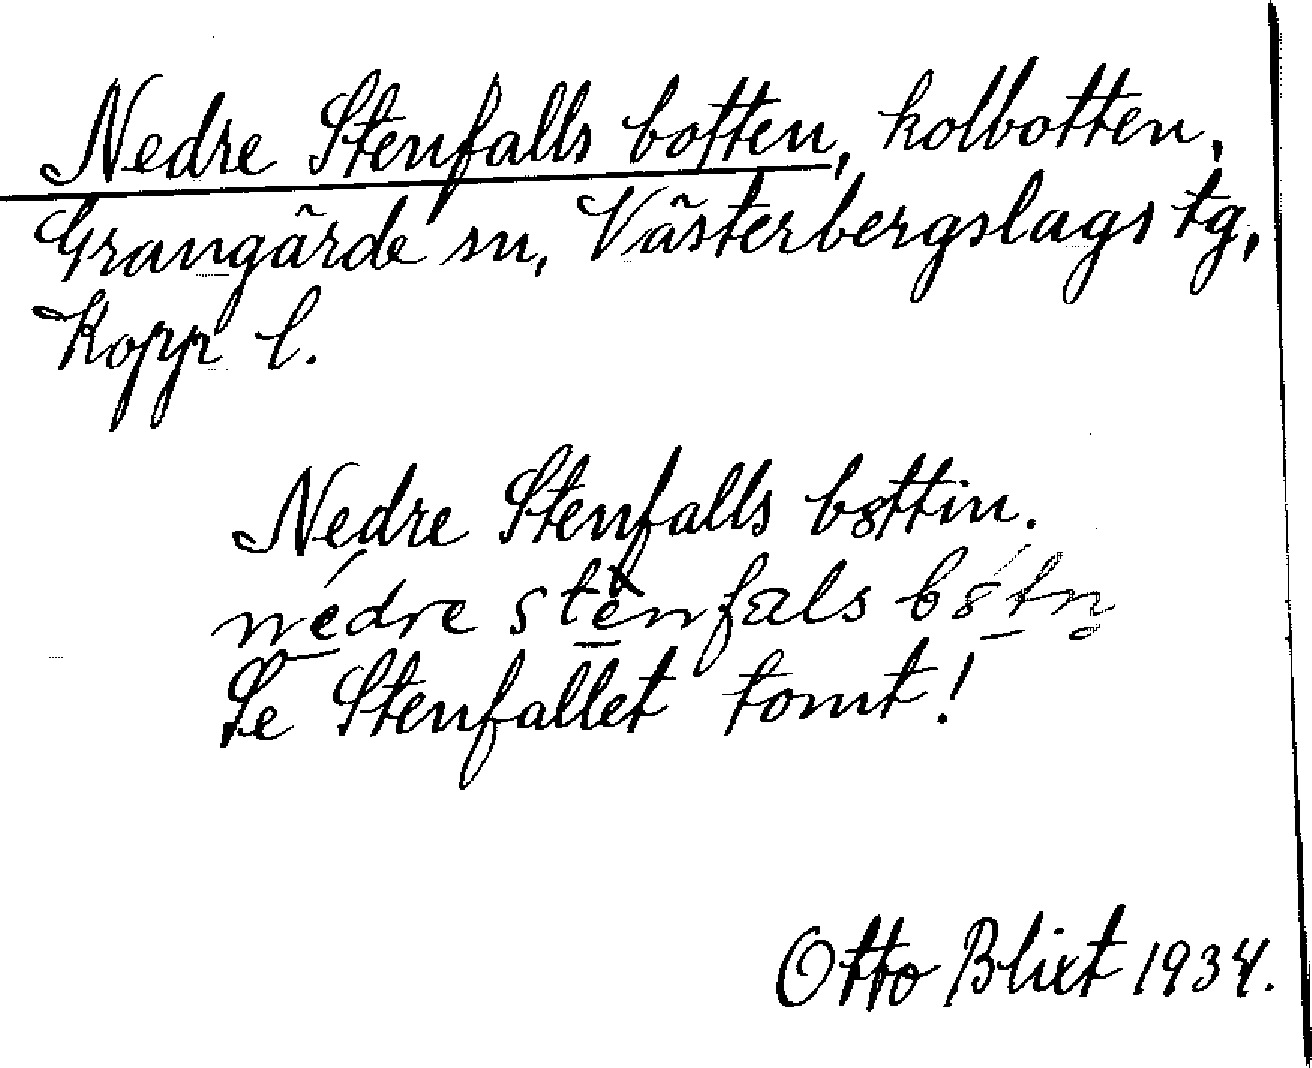 Nedre Stenfalls botten, kolbotten,
Grangärde sn, Västerbergslags tg,
Kopp l.
Nedre Stenfalls bottin.
nédre stènfals
Se Stenfallet tomt!
Otto Blixt 1934.